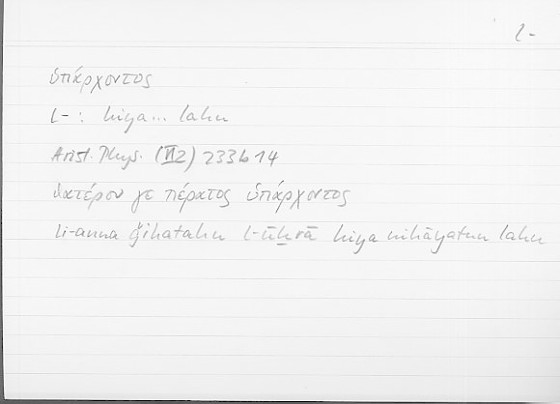 l-
ὑπάρχοντος
l- : hiya... lahu
Arist. Phys. (VI 2) 233b14
θατέρου γε πέρατος ὑπάρχοντος
li-anna ǧihatahu l-uḫrā hiya nihāyatun lahu